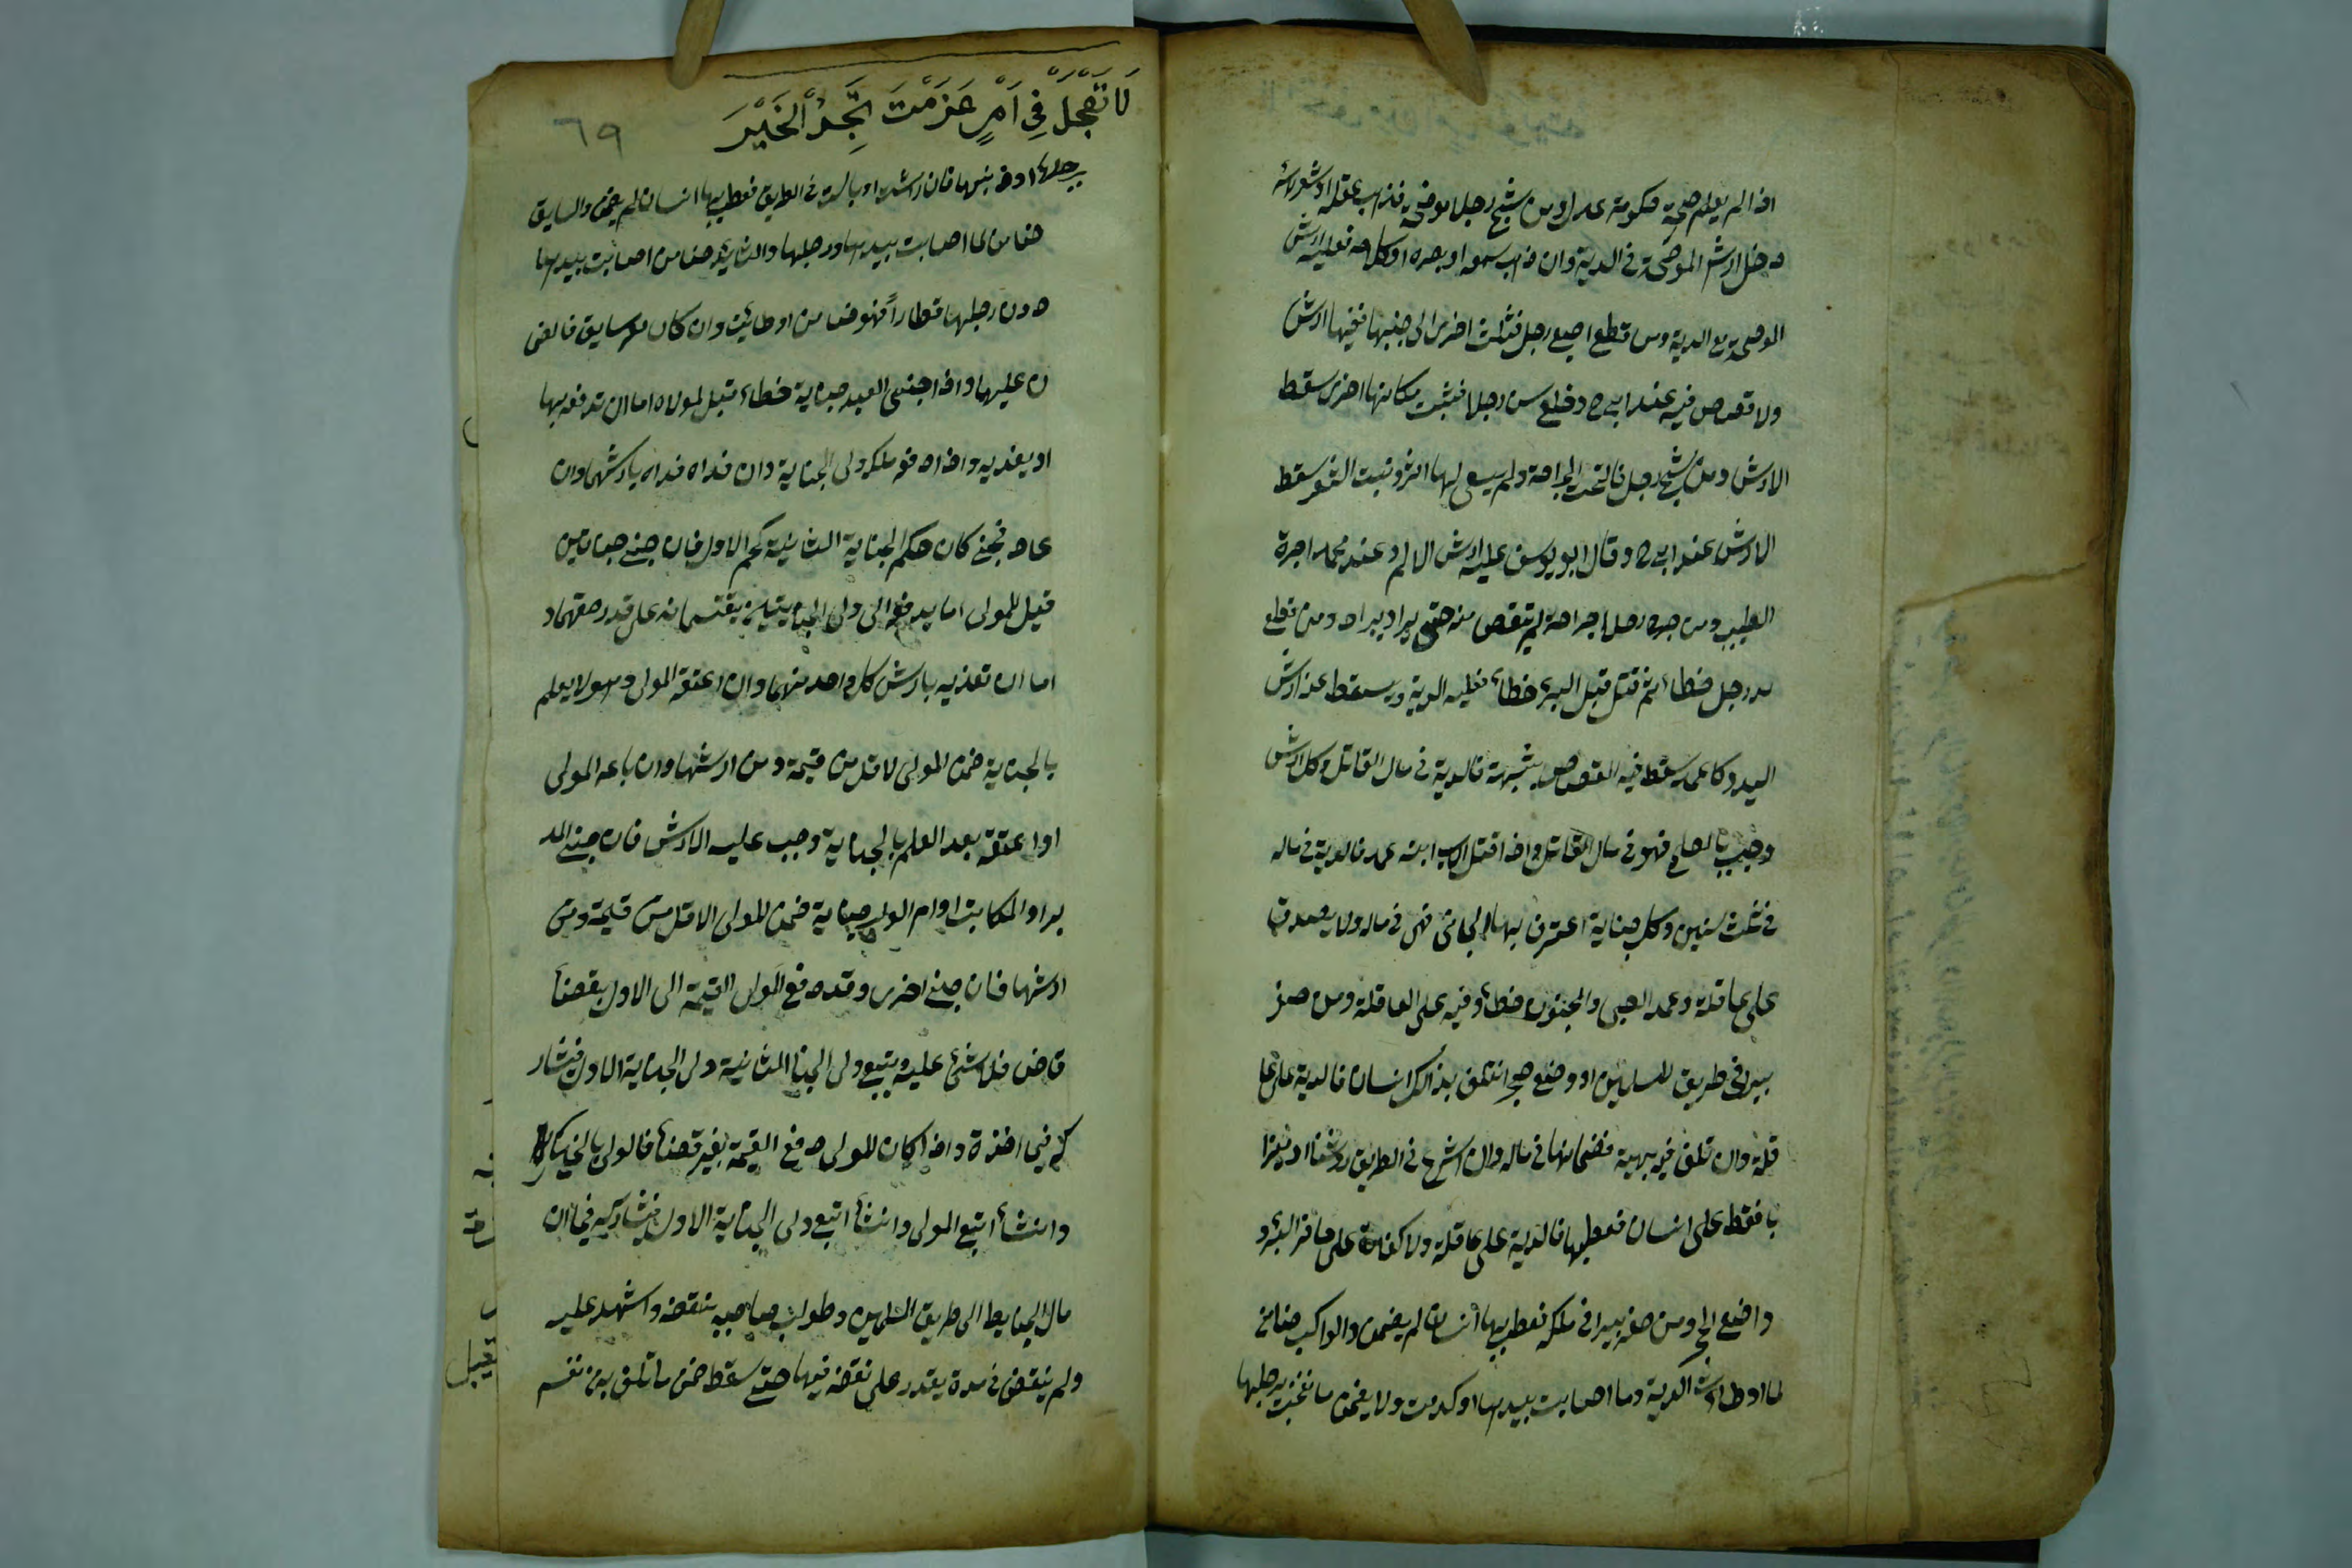 اذا لم يعلم صحة حكومة عدل ومن شج رجلا موضحة فذهب عقله او شعر راسه
دخل ارش الموضحة في الدية وان ذهب سمعه او بصره او كلامه فعليه ارش
الموضحة مع الدية ومن قطع اصبع رجل فشلت اخرى الى جنبها ففيها ارش
ولا قصاص فيه عند ابي ح وقلع سن رجل فنبت مكانها اخرى سقط
الارش ومن شج رجل فالتحمت الجراحة ولم يبق لها اثر ونبت الشعر سقط
الارش عند ابي ح وقال ابو يوسف عليه ارش الالم وعند محمد اجرة
الطبيب ومن جرح رجلا جراحة لم تقص منه حتى يبرا ومن قطع
يد رجل خطاء ثم قتل قبل البرء خطاء فعليه الدية ويسقط عنه ارش
اليد وكل عمد سقط فيه القصاص بشبهة فالدية في مال القاتل وكل ارش
وجب بالصلح فهو في مال القاتل واذا قتل الاب ابنه عمد فالدية في ماله
في ثلث سنين وكل جناية اعترف بها الجاني فهي في ماله ولا يصدق
على عاقلة وعمد الصبي والمجنون خطاء وفيه على العاقلة ومن حفر
بيرا في طريق المسلمين او وضع حجرا فتلف بذالك انسان فالدية على عا
قلة وان تلف فيه بهيمة فضمانها في ماله وان اشرع في الطريق روشنا او ميزا
با فسقط على انسان فعطب بها فالدية على عاقلة ولا كفارة على حافر البئر و
واضع الحجر ومن حفر بيرا في ملكه فعطب بها انسان لم يضمن والراكب ضامن
لما اوطات الدابة وما اصابت بيدها او كدمت ولا يضمن ما نفحت برجلها
لَا تَعْجَلْ فِي اَمْرٍ عَزَمْتَ تَجِدْ الْخَيْرَ
٦٩
برجلها او ذنبها فان راثت او بالت في الطريق فعطب بها انسان لم يضمن والسايق
ضامن لما اصابت بيدها ورجلها والقايد ضامن اصابت بيدها
دون رجلها قطاراً فهو ضامن اوطائت وان كان معه سايق فالضما
ن عليهما واذا جنى العبد جناية خطاء قيل لمولاه اما ان تدفعه بها
او يفديه واذا دفعه ملكه ولى الجناية وان فداه فداه بارشها وان
عاد فجنى كان حكم الجناية الثانية كحكم الاول فان جنى جنايتين
قيل للمولى اما يدفعه الى ولى الجنايتين يقتسمانه على قدر حقهما و
اما ان تفديه بارش كل واحد منهما وان اعتقه المولى وهو لا يعلم
بالجناية ضمن المولى لاقل من قيمة ومن ارشها وان باعه المولى
او اعتقه بعد العلم بالجناية وجب عليه الارش فان جنى المد
بر او المكاتب او ام الولد جناية ضمن المولى الاقل من قيمة ومن
ارشها فان جنى اخرى وقد دفع المولى القيمة الى الاول بقضاء
قاض فلا شئ عليه ويتبع ولى الجنا الثانية ولى الجناية الاول فيشار
كه فيما اخذه واذا كان المولى دفع القيمة بغير قضاء فالولى بالخيار
وان شاء اتبع المولى وان شاء اتبع ولى الجناية الاول فيشاركه فيما ان
مال الحايط الى طريق المسلمين وطولب صاحبه بنقضه واشهد عليه
ولم ينقض في مدة يقدر على نقضه فيها حتى سقط ضمن ما تلف به من نفس